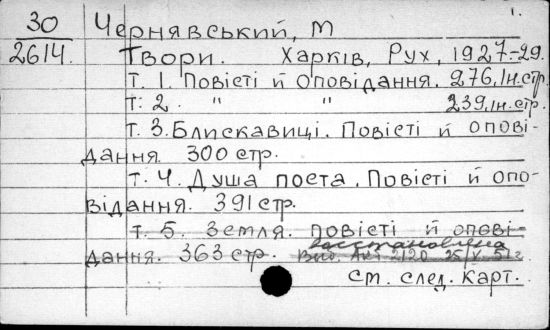 1.
30
2614.
Чернявський, М
Твори. Харків, Рух, 1927.-29.
т. 1. Повісті й оповідання. 276, Iн.стр.
т. 2. " " 239, Iн.стр.
т. 3. Блискавиці. Повісті й опові-
дання. 300 стр.
т. 4. Душа поета. Повісті й опо-
відання. 391 стр.
т. 5. Земля. Повісті й опові-
дання. 363 стр.
восстановлена
Акт 2120 25/V 51 г
ст. след. карт.